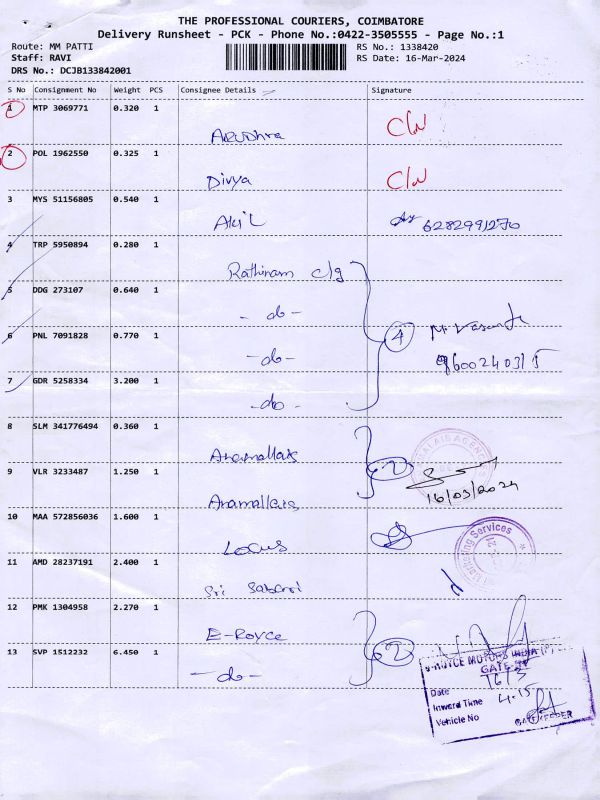 THE PROFESSIONAL COURIERS, COIMBATORE
Delivery Runsheet - PCK - Phone No.:0422-3505555 - Page No.:1
Route: MM PATTI
RS No.: 1338420
Staff: RAVI
RS Date: 16-Mar-2024
DRS No.: DCJB133842001
S No Consignment No Weight PCS Consignee Details Signature
1 MTP 3069771 0.320 1
C/W
2 POL 1962550 0.325 1
Divya C/W
3 MYS 51156805 0.540 1
Akil 6282991270
4 TRP 5950894 0.280 1
Rathinam clg
5 DDG 273107 0.640 1
-do- 4
6 PNL 7091828 0.770 1
-do-
7 GDR 5258334 3.200 1
-do-
8 SLM 341776494 0.360 1
Anamallais
9 VLR 3233487 1.250 1
2
16/03/2024
Anamallais
10 MAA 572856036 1.600 1
Locus
11 AMD 28237191 2.400 1
Sri Sabari
12 PMK 1304958 2.270 1
E-Royce
13 SVP 1512232 6.450 1
2
-do-
GATE
Date 16/3
Inward Time 4.15
Vehicle No
GATE KEEPER